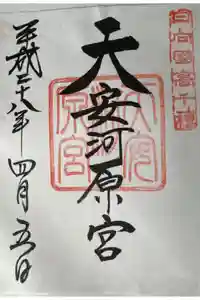 日向國高千穂
天安河原宮
平成二十八年四月五日